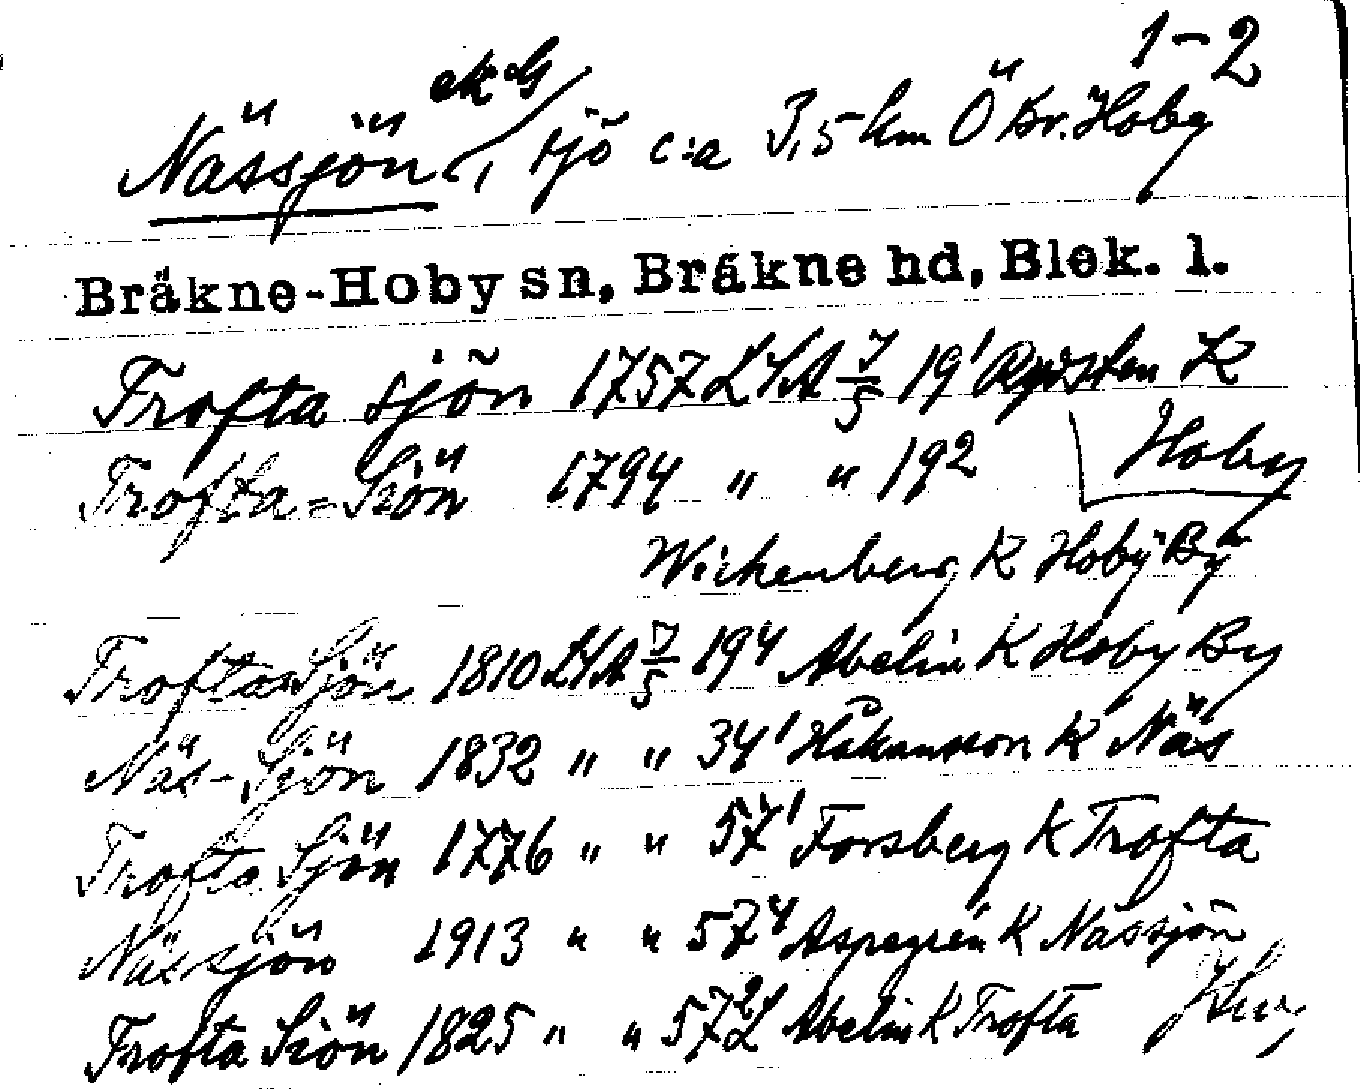 1-2
ek G
Nässjön, sjö c:a 3,5 km Ö Br. Hoby
Bräkne-Hoby sn, Bräkne hd, Blek. l.
Trofta sjön 1757 LSA 7/5 19¹ K
Hoby
Trofta-Siön 1794 " " 19² 
Wickenberg K Hobÿ Bÿ
Trofta Sjön 1810 LSA 7/5 19⁴ Abelin K Hoby By
Näs-Sjön 1832 " " 34¹ Håkansson K Näs
Trofta Sjön 1776 " " 57¹ Forsberg K Trofta
Nässjön 1913 " " 57⁴ Aspegrén K Nässjön
Trofta Siön 1825 " " 57² Abelin K Trofta